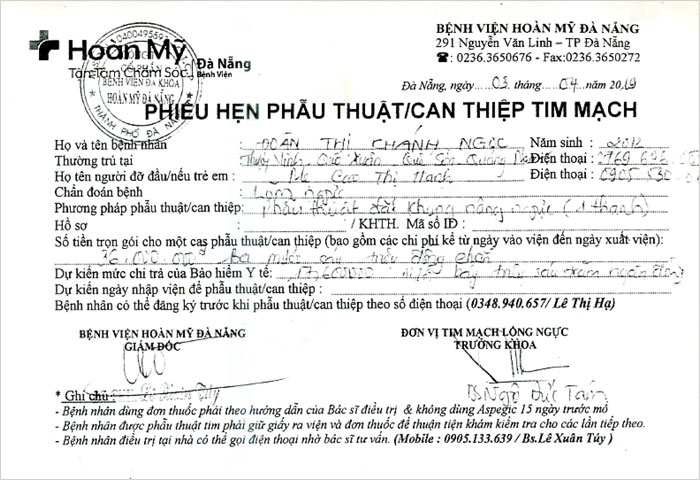 Hoàn Mỹ
Đà Nẵng
Tận Tâm Chăm Sóc
Bệnh Viện
0400495597
BỆNH VIỆN ĐA KHOA
HOÀN MỸ ĐÀ NẴNG
THÀNH PHỐ ĐÀ NẴNG
BỆNH VIỆN HOÀN MỸ ĐÀ NẴNG
291 Nguyễn Văn Linh – TP Đà Nẵng
☎: 0236.3650676 - Fax:0236.3650272
Đà Nẵng, ngày 03 tháng 04 năm 2019
PHIẾU HẸN PHẪU THUẬT/CAN THIỆP TIM MẠCH
Họ và tên bệnh nhân : ĐOÀN THỊ CHÁNH NGỌC Năm sinh :
Thường trú tại : Quế Xuân, Quế Sơn, Quảng Điện thoại :
Họ tên người đỡ đầu/nếu trẻ em : Thị Hạnh Điện thoại :
Chẩn đoán bệnh : Lõm ngực
Phương pháp phẫu thuật/can thiệp: Phẫu thuật đặt khung nâng ngực (1 thanh)
Hồ sơ : / KHTH. Mã số ID :
Số tiền trọn gói cho một cas phẫu thuật/can thiệp (bao gồm các chi phí kể từ ngày vào viện đến ngày xuất viện):
36.000.000đ Ba mươi sáu triệu đồng chẵn
Dự kiến mức chi trả của Bảo hiểm Y tế: 17.600.000 mười bảy triệu sáu trăm ngàn đồng
Dự kiến ngày nhập viện để phẫu thuật/can thiệp :
Bệnh nhân có thể đăng ký trước khi phẫu thuật/can thiệp theo số điện thoại (0348.940.657/ Lê Thị Hạ)
BỆNH VIỆN HOÀN MỸ ĐÀ NẴNG
GIÁM ĐỐC
ĐƠN VỊ TIM MẠCH LỒNG NGỰC
TRƯỞNG KHOA
BS Ngô Đức
* Ghi chú :
- Bệnh nhân dùng đơn thuốc phải theo hướng dẫn của Bác sĩ điều trị & không dùng Aspegic 15 ngày trước mổ
- Bệnh nhân được phẫu thuật tim phải giữ giấy ra viện và đơn thuốc để thuận tiện khám kiểm tra cho các lần tiếp theo.
- Bệnh nhân điều trị tại nhà có thể gọi điện thoại nhờ bác sĩ tư vấn. (Mobile : 0905.133.639 / Bs.Lê Xuân Túy )